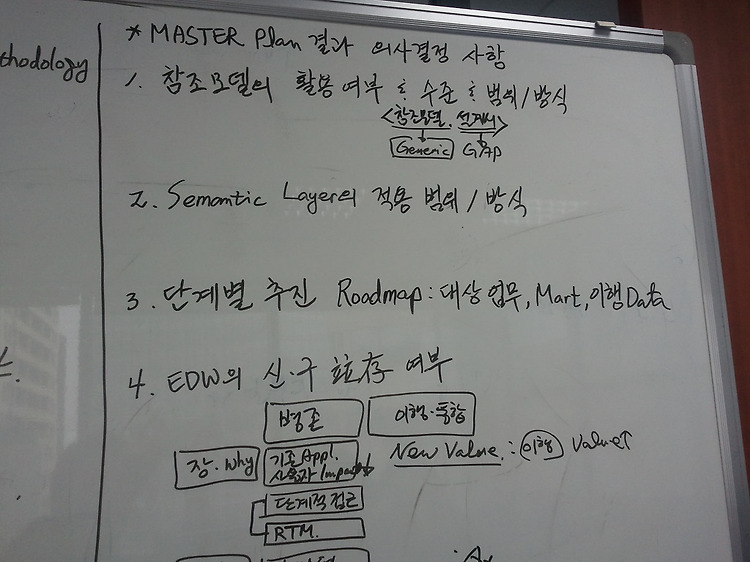 thodology
* MASTER Plan 결과 의사결정 사항
1. 참조모델의 활용여부 및 수준 및 범위/방식
<참조모델, 설계서>
Generic GAP
2. Semantic Layer의 적용 범위/방식
3. 단계별 추진 Roadmap: 대상업무, Mart, 이행Data
4. EDW의 신·구 並存 여부
병존 이행·통합
장·Why 기존 Appl. New Value : 이행 Value↑
사용자 Impact
단계적 접근
RTM.